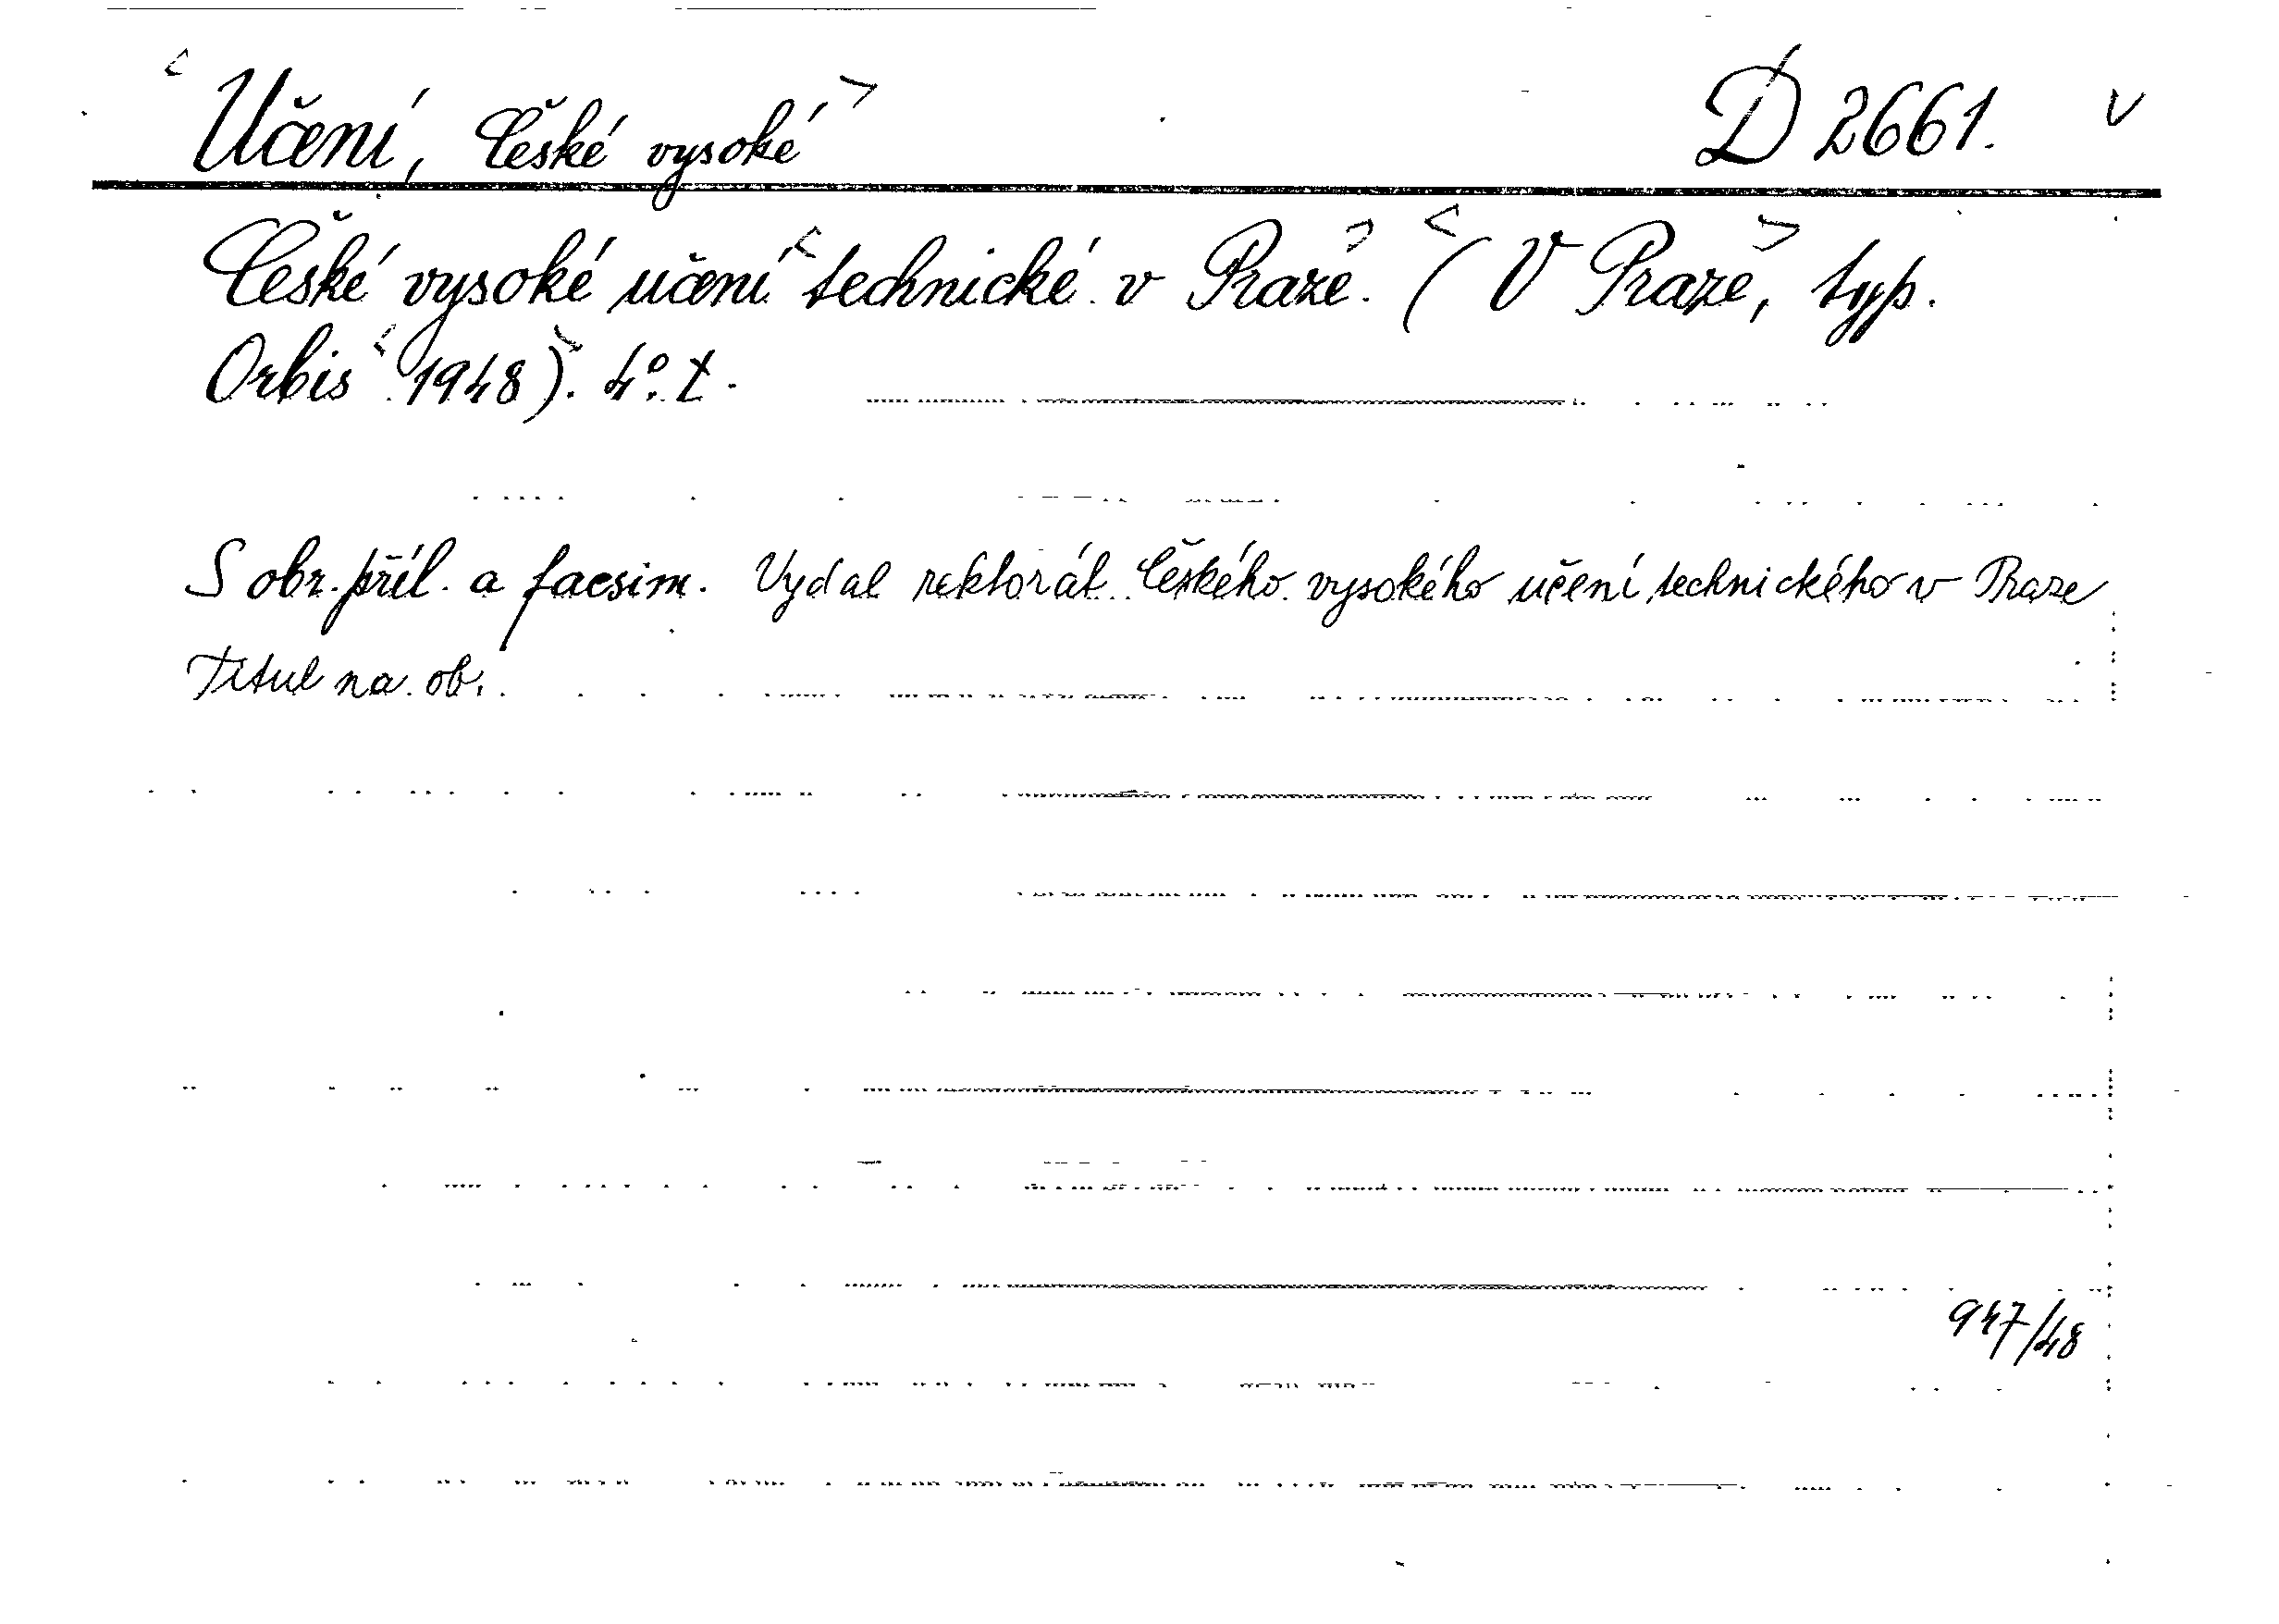 < Učení, České vysoké > D 2661. v
České vysoké učení < technické v Praze. > < (V Praze, > typ.
Orbis < 1948). > 4°. t.
S obr. příl. a facsim. Vydal rektorát Českého vysokého učení technického v Praze
Titul na ob.
947/48